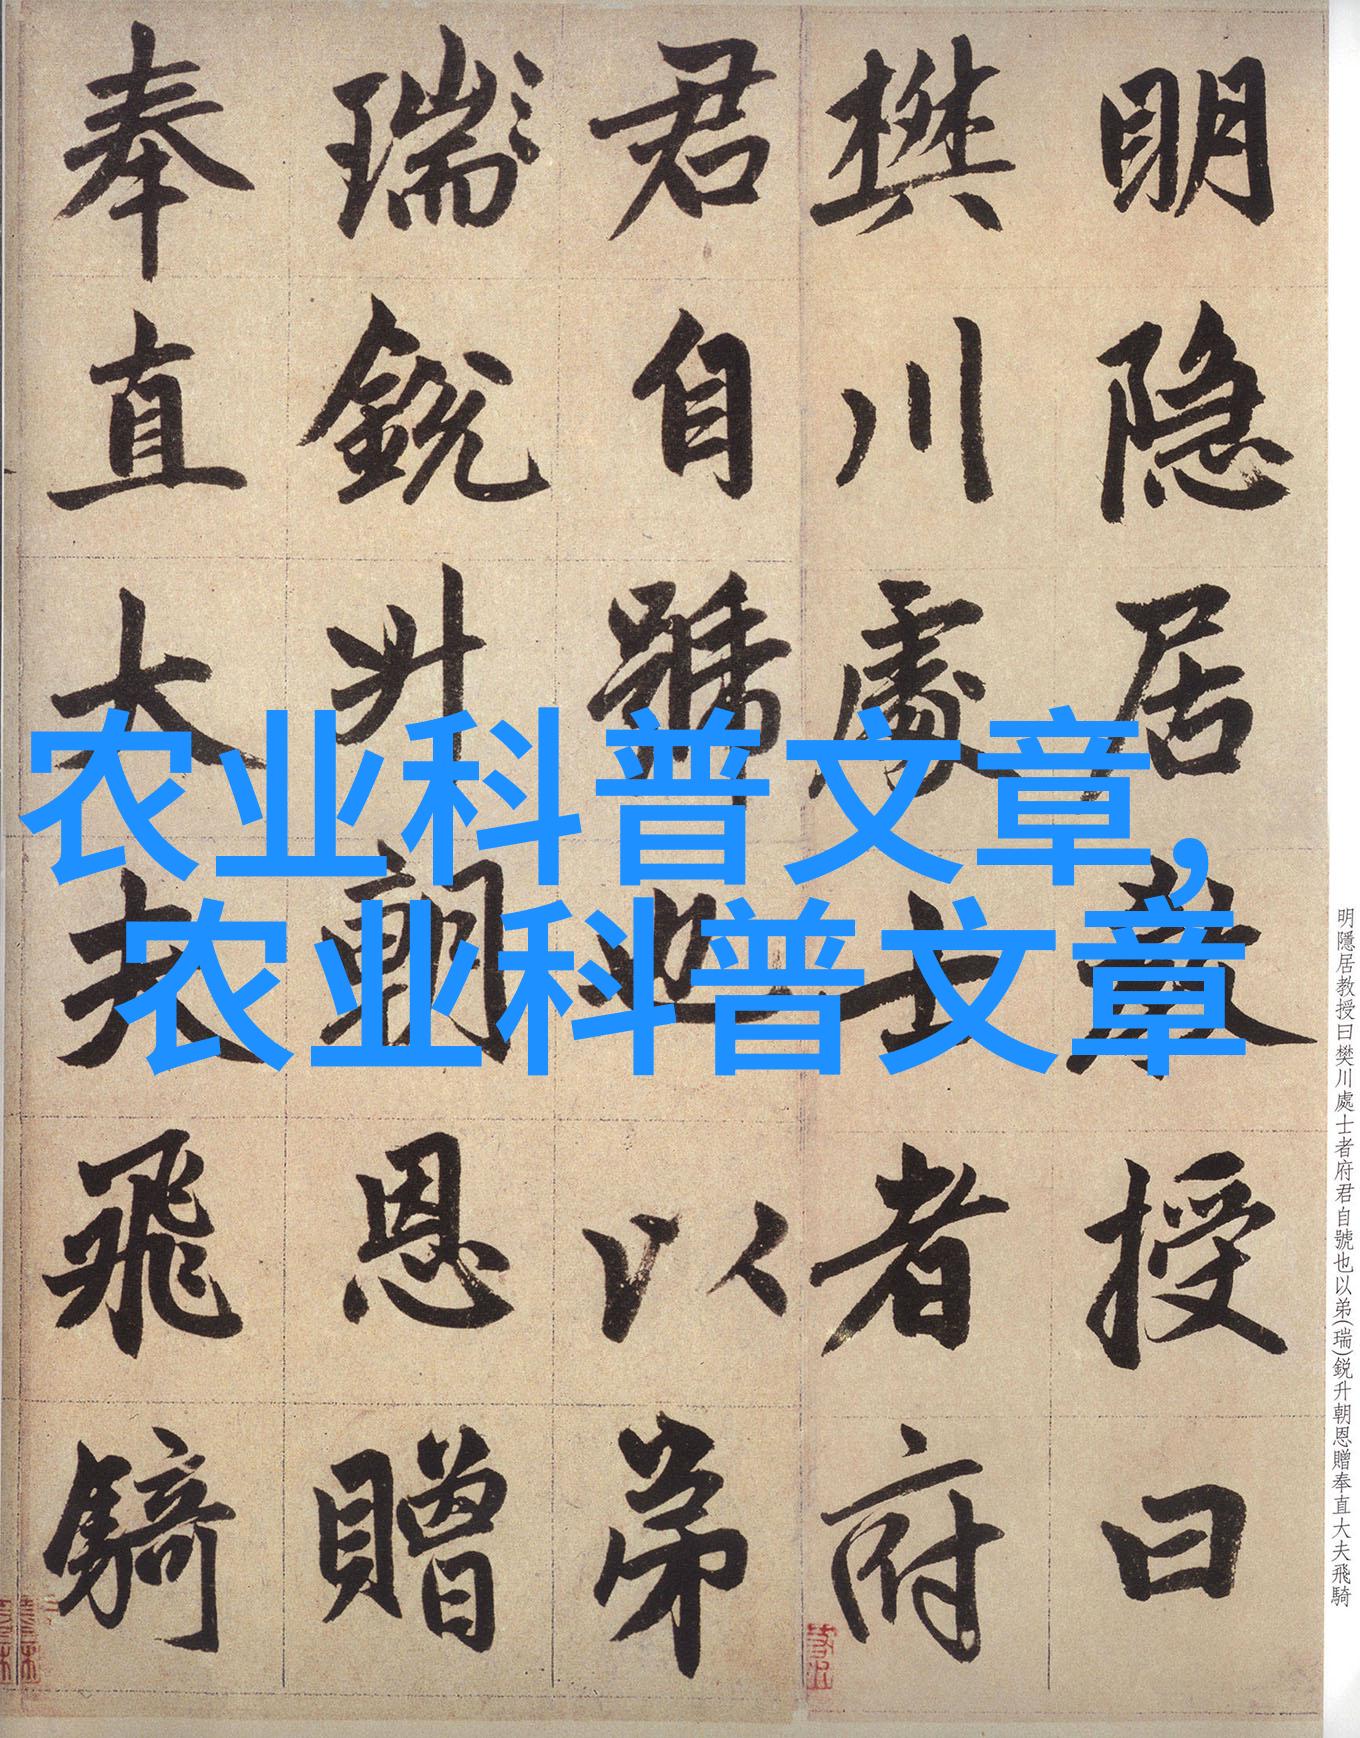 明隐居教授曰
樊川處士者府
君自號也以弟
瑞銳升朝恩贈
奉直大夫飛騎
农业科普文章,
农业科普文章
明隱居教授曰樊川處士者府君自號也以弟(瑞)鋭升朝恩贈奉直大夫飛騎